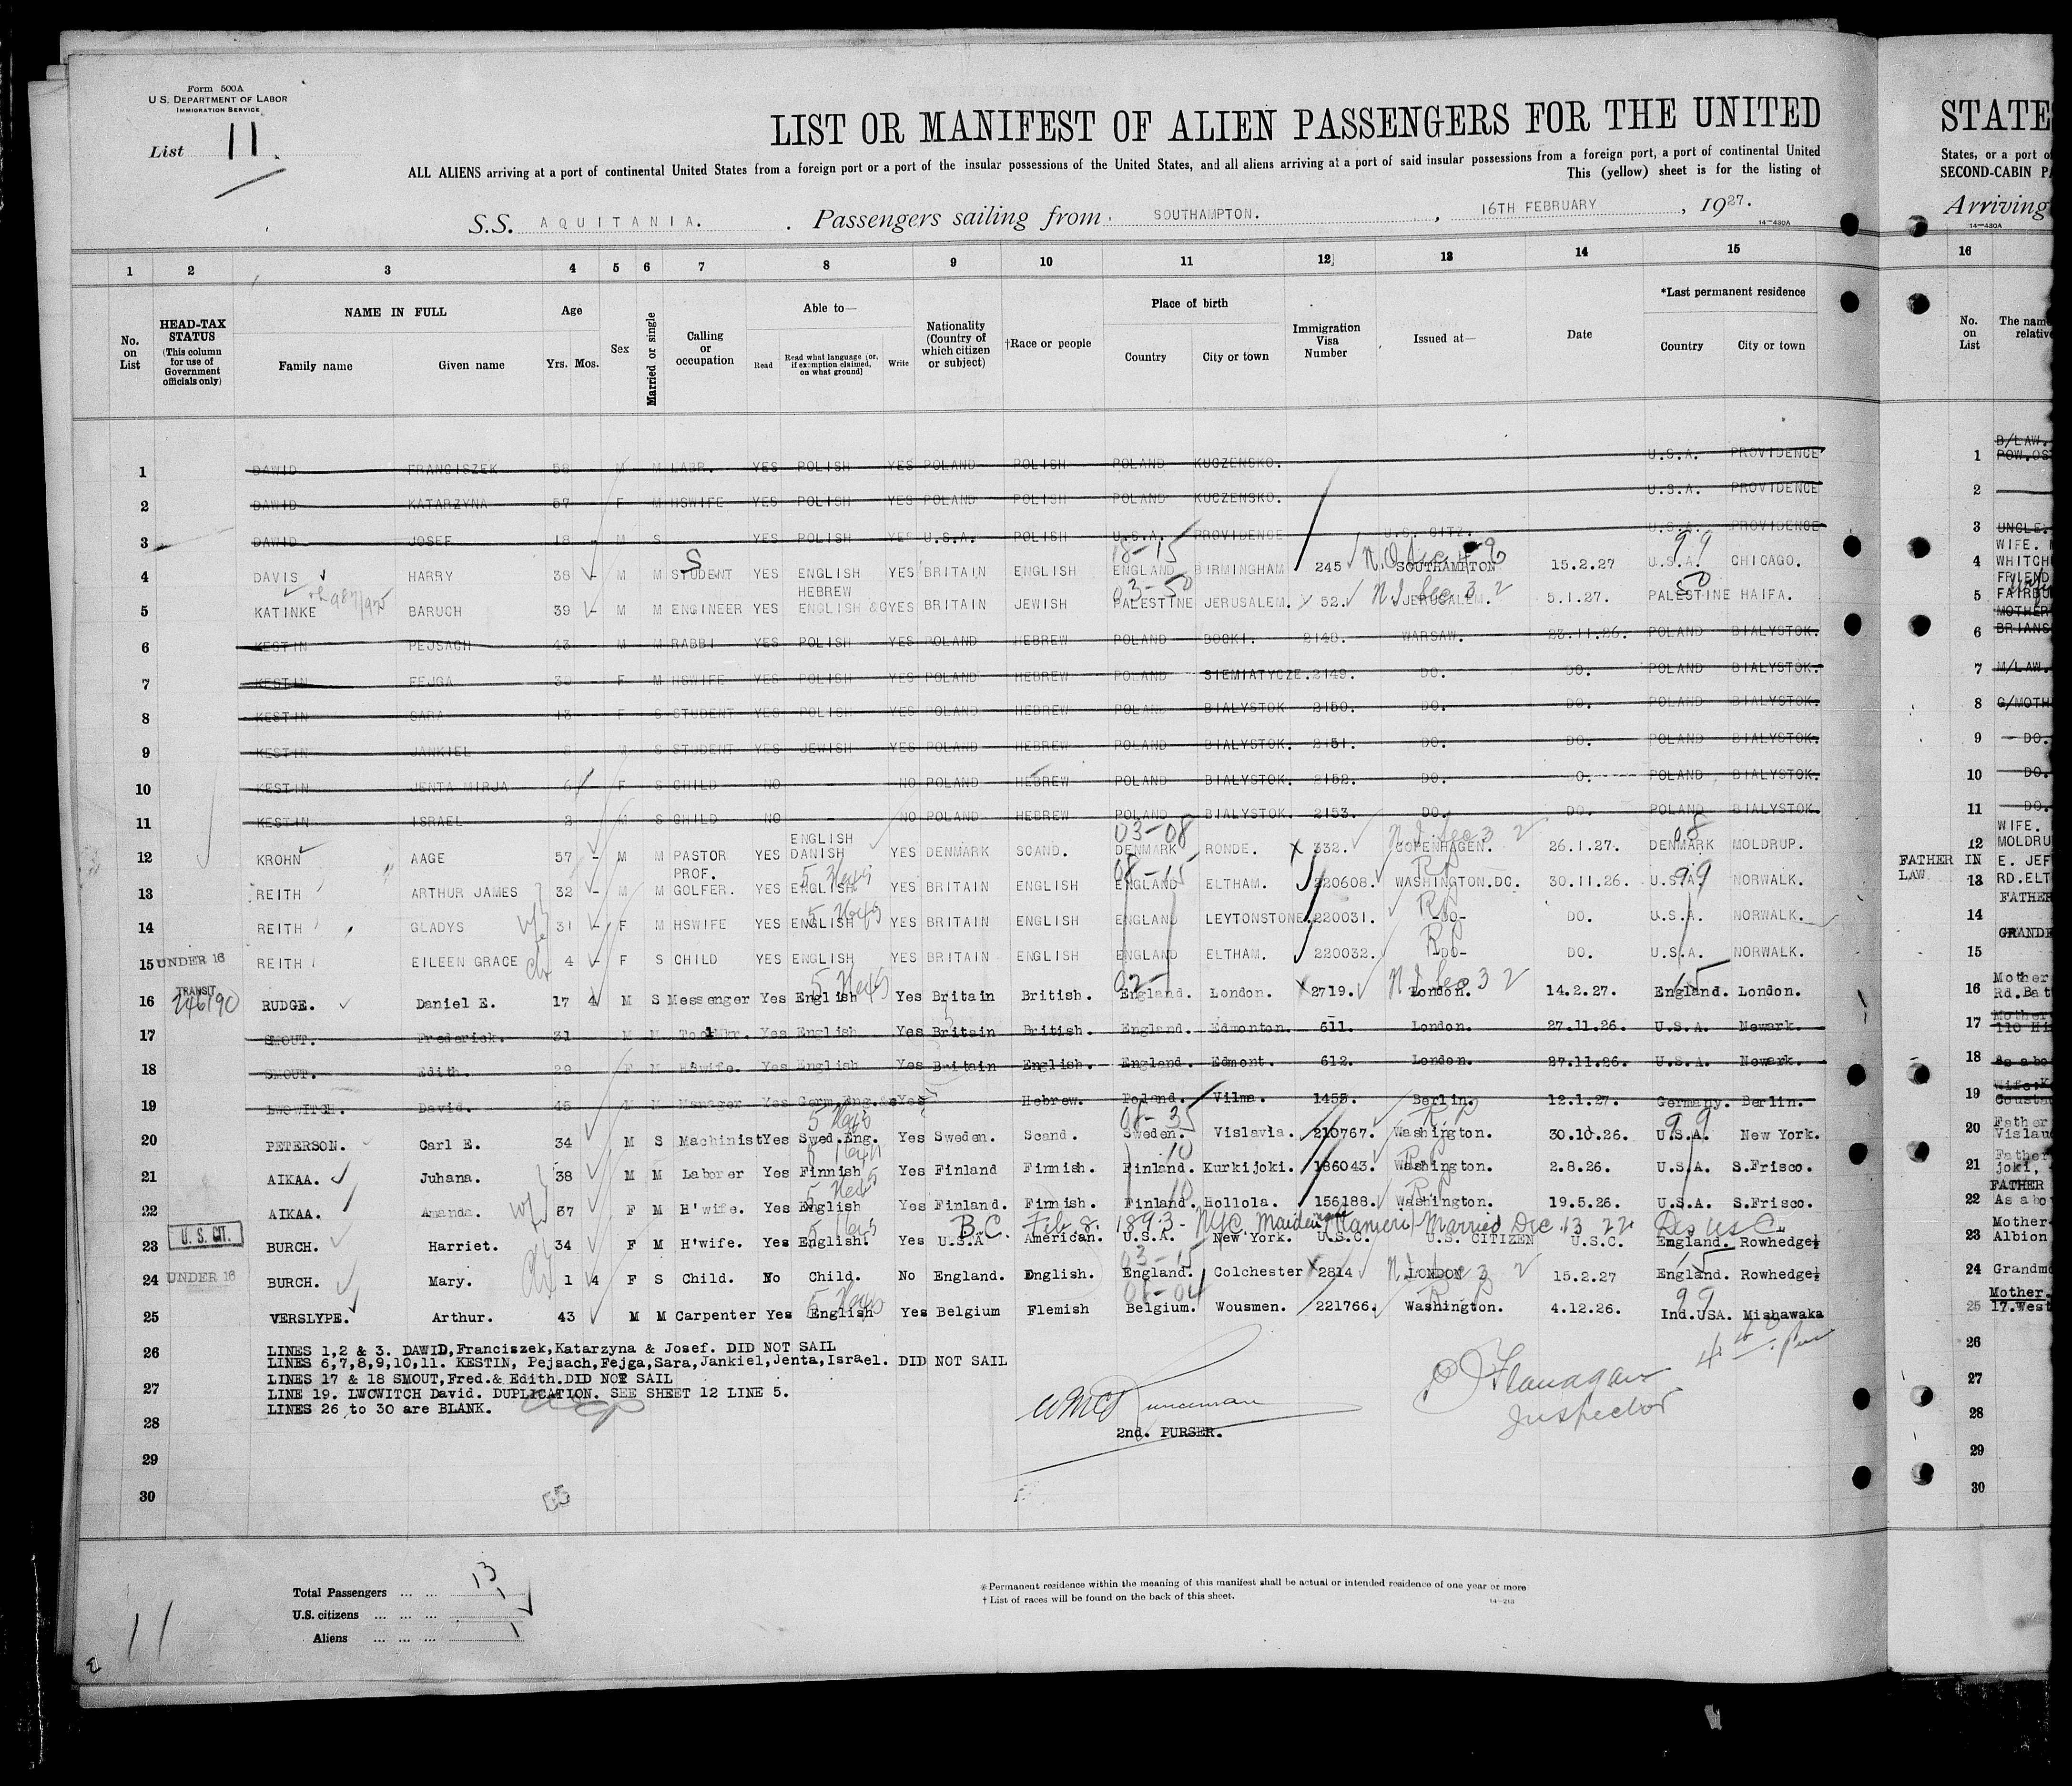 Form 500A
U.S. DEPARTMENT OF LABOR
IMMIGRATION SERVICE
List 11.
LIST OR MANIFEST OF ALIEN PASSENGERS FOR THE UNITED
ALL ALIENS arriving at a port of continental United States from a foreign port or a port of the insular possessions of the United States, and all aliens arriving at a port of said insular possessions from a foreign port, a port of continental United
This (yellow) sheet is for the listing of
S.S. AQUITANIA. Passengers sailing from SOUTHAMPTON. , 16TH FEBRUARY , 1927.
14-430A
STATE
States, or a port of
SECOND-CABIN PA
Arriving
14-430A
1 2 3 4 5 6 7 8 9 10 11 12 13 14 15 16
No. on List
HEAD-TAX STATUS (This column for use of Government officials only)
NAME IN FULL
Family name Given name
Age
Yrs. Mos.
Sex
Married or single
Calling or occupation
Able to—
Read Read what language (or, if exemption claimed, on what ground) Write
Nationality (Country of which citizen or subject)
†Race or people
Place of birth
Country City or town
Immigration Visa Number
Issued at—
Date
*Last permanent residence
Country City or town
No. on List
The name relative
1 DAWID FRANCISZEK 58 M M LABR. YES POLISH YES POLAND POLISH POLAND KUCZENSKO. U.S.A. PROVIDENCE
2 DAWID KATARZYNA 57 F M HSWIFE YES POLISH YES POLAND POLISH POLAND KUCZENSKO. U.S.A. PROVIDENCE
3 DAWID JOSEF 18 M S YES POLISH YES U.S.A. POLISH U.S.A. PROVIDENCE U.S. CITZ. U.S.A. PROVIDENCE
4 DAVIS HARRY 38 - M M STUDENT YES ENGLISH YES BRITAIN ENGLISH ENGLAND BIRMINGHAM 245 SOUTHAMPTON 15.2.27 U.S.A. CHICAGO.
5 KATINKE BARUCH 39 - M M ENGINEER YES HEBREW ENGLISH &C YES BRITAIN JEWISH PALESTINE JERUSALEM. 52. JERUSALEM. 5.1.27. PALESTINE HAIFA.
6 KESTIN PEJSACH 43 M M RABBI YES POLISH YES POLAND HEBREW POLAND BOCKI. 2148. WARSAW. 23.11.26. POLAND BIALYSTOK.
7 KESTIN FEJGA 39 F M HSWIFE YES POLISH YES POLAND HEBREW POLAND SIEMIATYCZE. 2149. DO. DO. POLAND BIALYSTOK.
8 KESTIN SARA 13 F S STUDENT YES POLISH YES POLAND HEBREW POLAND BIALYSTOK 2150. DO. DO. POLAND BIALYSTOK.
9 KESTIN JANKIEL M S STUDENT YES JEWISH YES POLAND HEBREW POLAND BIALYSTOK. 2151. DO. DO. POLAND BIALYSTOK.
10 KESTIN JENTA MIRJA 6 F S CHILD NO NO POLAND HEBREW POLAND BIALYSTOK. 2152. DO. O. POLAND BIALYSTOK.
11 KESTIN ISRAEL 2 M S CHILD NO NO POLAND HEBREW POLAND BIALYSTOK. 2153. DO. DO. POLAND BIALYSTOK
12 KROHN AAGE 57 - M M PASTOR YES ENGLISH DANISH YES DENMARK SCAND. DENMARK RONDE. 332. COPENHAGEN. 26.1.27. DENMARK MOLDRUP.
13 REITH ARTHUR JAMES 32 - M M PROF. GOLFER. YES ENGLISH YES BRITAIN ENGLISH ENGLAND ELTHAM. 220608. WASHINGTON.DC. 30.11.26. U.S.A. NORWALK.
14 REITH GLADYS 31 - F M HSWIFE YES ENGLISH YES BRITAIN ENGLISH ENGLAND LEYTONSTONE. 220031. -DO- DO. U.S.A. NORWALK.
15 UNDER 16 REITH EILEEN GRACE 4 - F S CHILD YES ENGLISH YES BRITAIN ENGLISH ENGLAND ELTHAM. 220032. DO- DO. U.S.A. NORWALK.
16 TRANSIT 246190 RUDGE. Daniel E. 17 4 M S Messenger Yes English Yes Britain British. England. London. 2719. London. 14.2.27. England. London.
17 SMOUT. Frederick. 31 M M Yes English Yes Britain British. England. Edmonton. 611. London. 27.11.26. U.S.A. Newark.
18 SMOUT. Edith. 29 F M H'wife. Yes English Yes Britain English. England. Edmont. 612. London. 27.11.26. U.S.A. Newark.
19 LWOWITCH. David. 45 M M Manager Yes Germ.Eng. Yes Hebrew. Poland. Vilma. 1455. Berlin. 12.1.27. Germany. Berlin.
20 PETERSON. Carl E. 34 M S Machinist Yes Swed.Eng. Yes Sweden. Scand. Sweden. Vislavia. 210767. Washington. 30.10.26. U.S.A. New York.
21 AIKAA. Juhana. 38 M M Laborer Yes Finnish Yes Finland Finnish. Finland. Kurkijoki. 186043. Washington. 2.8.26. U.S.A. S.Frisco.
22 AIKAA. Amanda. 37 F M H'wife. Yes English Yes Finland. Finnish. Finland. Hollola. 156188. Washington. 19.5.26. U.S.A. S.Frisco.
B.C. Feb. 8. 1893 - NYC Maiden name Married Dec 13 22 Res US C.
23 U.S. CIT. BURCH. Harriet. 34 F M H'wife. Yes English. Yes U.S.A American. U.S.A. New York. U.S.C. U.S. CITIZEN U.S.C. England. Rowhedge
24 UNDER 16 BURCH. Mary. 1 4 F S Child. No Child. No England. English. England. Colchester 2814 LONDON 15.2.27 England. Rowhedge
25 VERSLYPE. Arthur. 43 M M Carpenter Yes English Yes Belgium Flemish Belgium. Wousmen. 221766. Washington. 4.12.26. Ind.USA. Mishawaka
26 LINES 1,2 & 3. DAWID,Franciszek,Katarzyna & Josef. DID NOT SAIL
LINES 6,7,8,9,10,11. KESTIN, Pejsach,Fejga,Sara,Jankiel,Jenta,Israel. DID NOT SAIL
27 LINES 17 & 18 SMOUT,Fred.& Edith.DID NOT SAIL
LINE 19. LWOWITCH David. DUPLICATION. SEE SHEET 12 LINE 5.
28 LINES 26 to 30 are BLANK.
2nd. PURSER.
Flanagan
Inspector
29
30
1 B/LAW.
2
3 UNCLE.
4 WIFE. WHITCH
5 FRIEND FAIRBU
6 MOTHER BRIANS
7 M/LAW.
8 G/MOTH
9 - DO.
10 DO.
11 DO.
12 WIFE. MOLDRU
FATHER IN LAW
13 E. JEF RD.ELT
14 FATHER
15 GRAND
16 Mother Rd.Bat
17 Mother 110 Hi
18 As abo
19 Wife.
20 Father Vislau
21 Father joki,
22 FATHER As abo
23 Mother Albion
24 Grandmo
25 Mother. 17.West
26
27
28
29
30
Total Passengers ... ... 13
U.S. citizens ... ... ... 1
Aliens ... ... ...
11
※Permanent residence within the meaning of this manifest shall be actual or intended residence of one year or more
† List of races will be found on the back of this sheet.
14-213